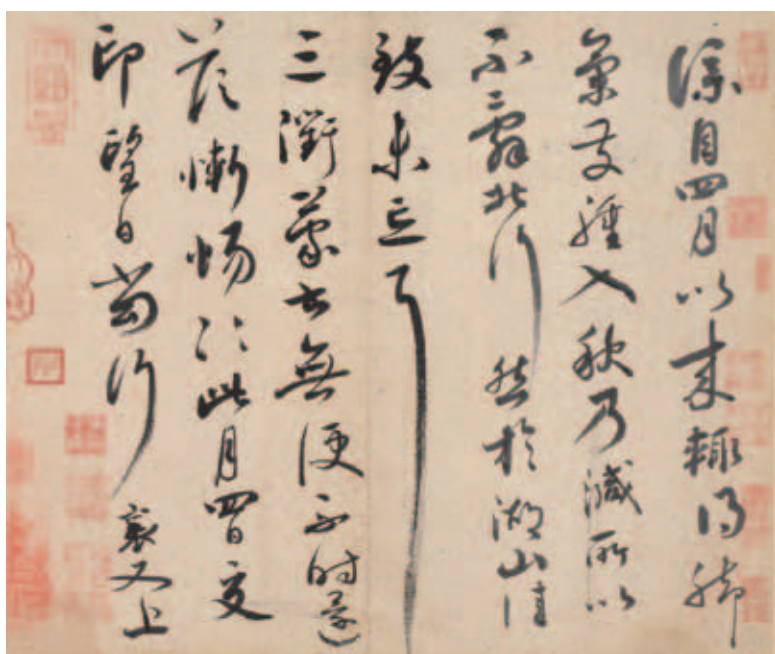 襄自四月以来輙得脚
氣發腫入秋乃減所以
不辭北行然於湖山佳
致未忘耳
三衢蒙書無便不時還
荅慚惕々々此月四日交
印望日當行襄又上